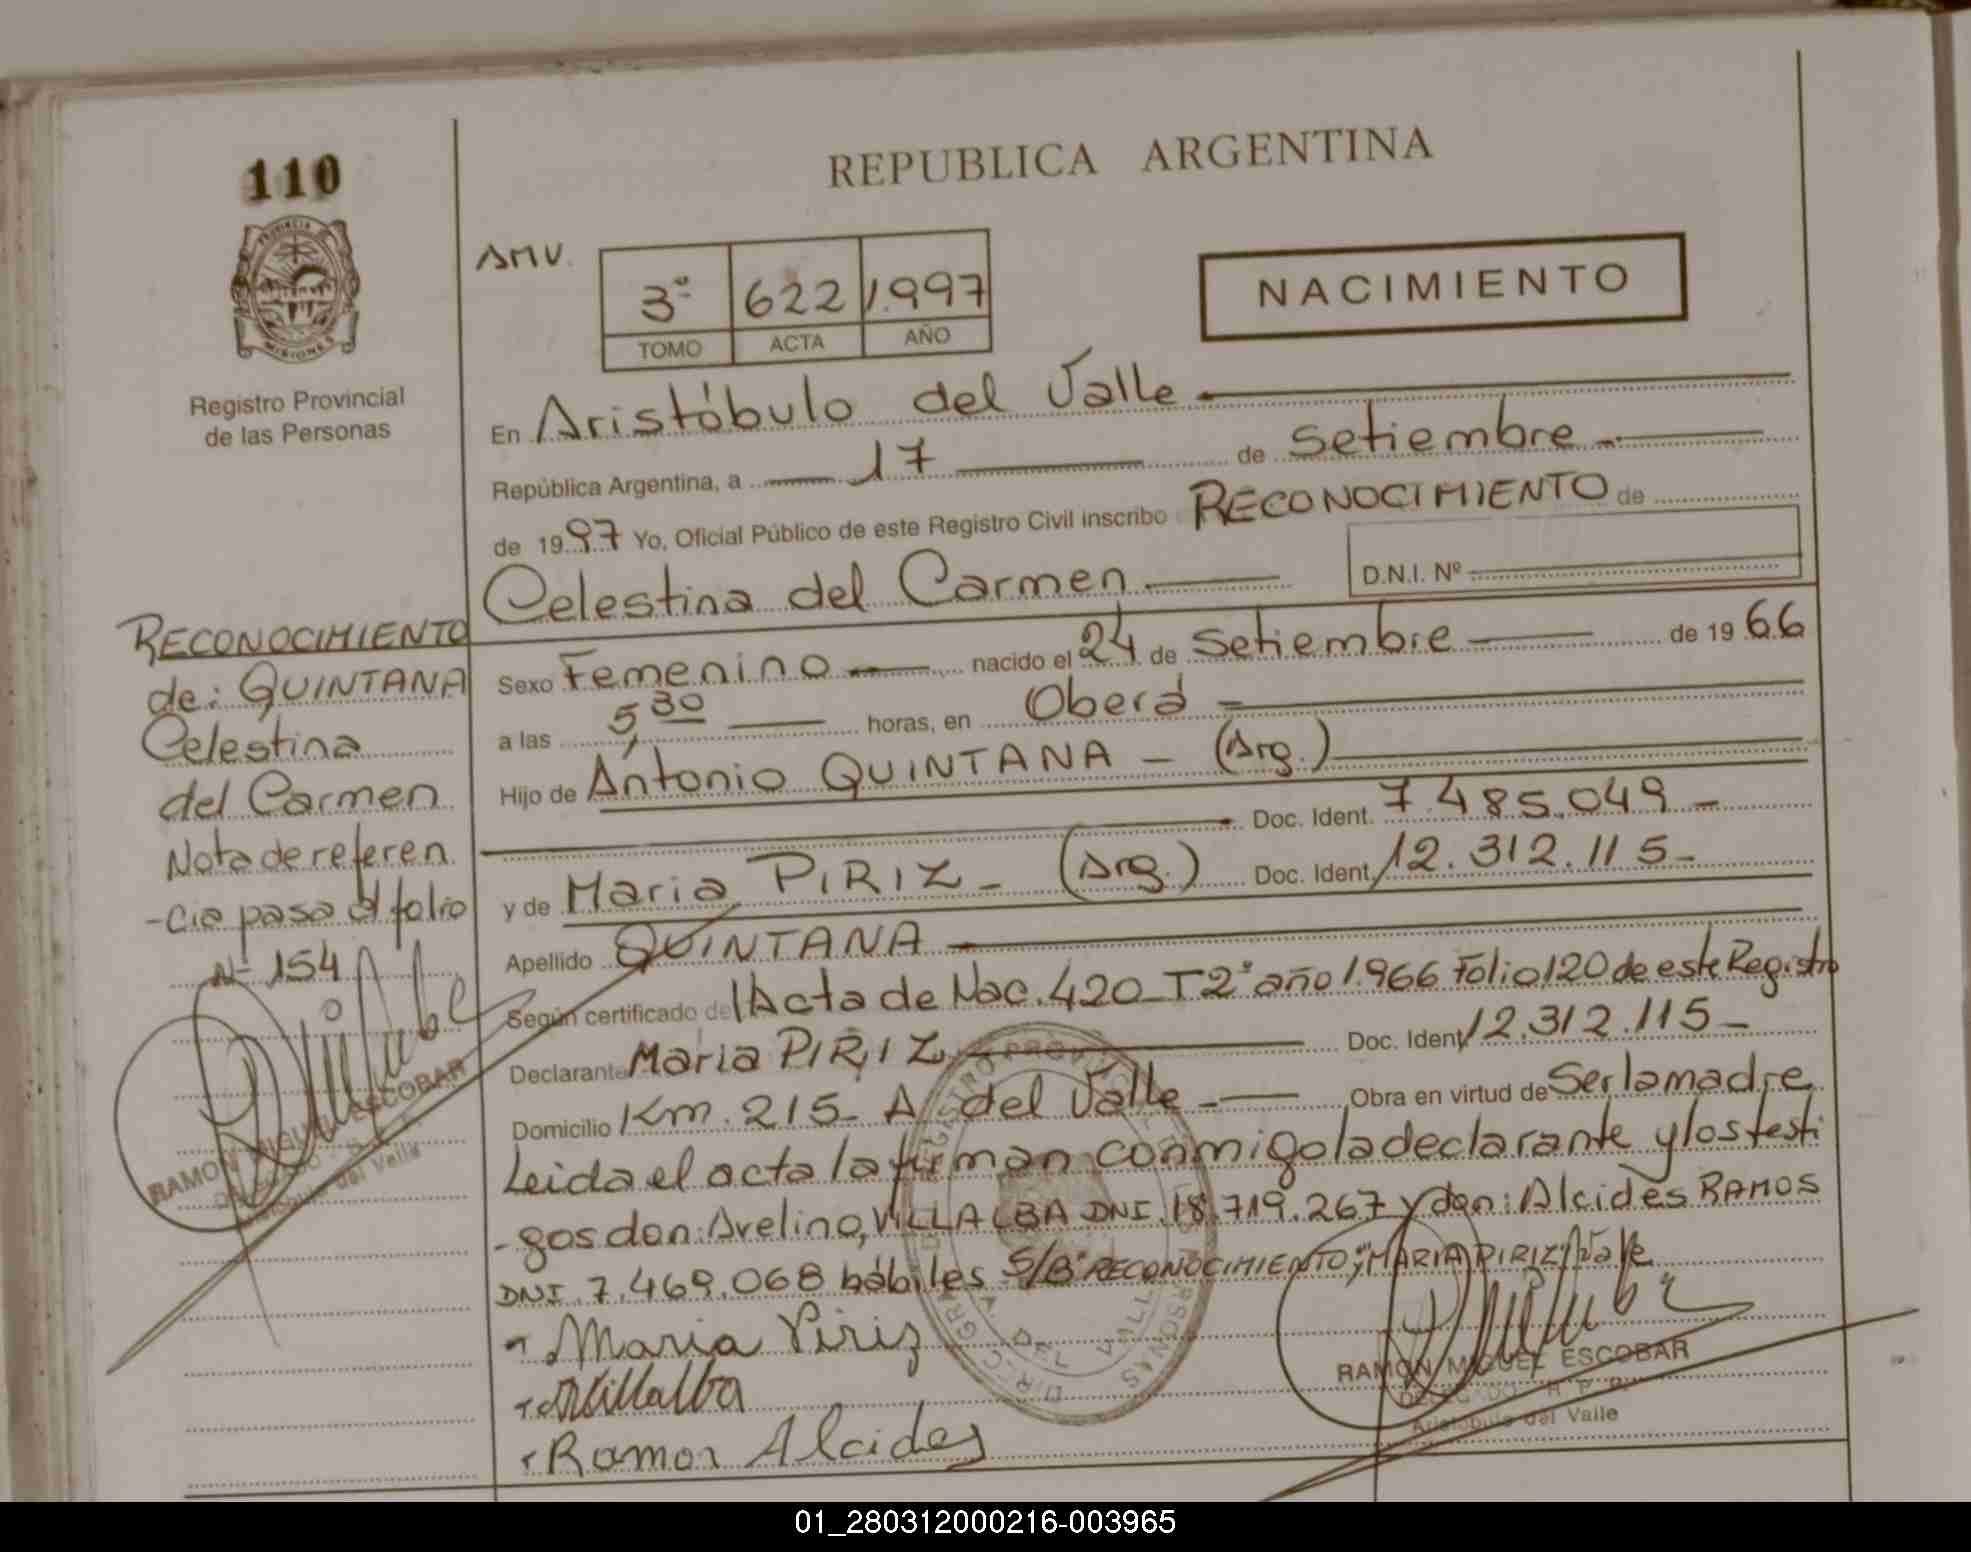 110
REPUBLICA ARGENTINA
PROVINCIA
MISIONES
Registro Provincial
de las Personas
AMV.
3º 622 1.997
TOMO ACTA AÑO
NACIMIENTO
En Aristóbulo del Valle
República Argentina, a 17 de Setiembre
de 1997 Yo, Oficial Público de este Registro Civil inscribo RECONOCIMIENTO de
Celestina del Carmen D.N.I. Nº
Sexo Femenino nacido el 24 de Setiembre de 1966
a las 5,30 horas, en Oberá
Hijo de Antonio QUINTANA - (Arg.)
Doc. Ident. 7.485.049 -
y de Maria PIRIZ - (Arg.) Doc. Ident. 12.312.115 -
Apellido QUINTANA
Según certificado del Acta de Nac. 420 - T 2º año 1.966 Folio 120 de este Registro
Declarante Maria PIRIZ Doc. Ident. 12.312.115 -
Domicilio Km. 215 - A. del Valle - Obra en virtud de Ser la madre
Leida el acta la firman conmigo la declarante y los testi
- gos don: Avelino, VILLALBA DNI. 18.719.267 y don: Alcides RAMOS
DNI. 7.469.068 hábiles S/Bº RECONOCIMIENTO; "MARIA PIRIZ" Vale
Maria Piriz
AVillalba
Ramon Alcides
RAMON MIGUEL ESCOBAR
DELEGADO R. P. P.
Aristobulo del Valle
RECONOCIMIENTO
de: QUINTANA
Celestina
del Carmen
Nota de referen
- cia pasa al folio
Nº 154
RAMON MIGUEL ESCOBAR
Aristobulo del Valle
01_280312000216-003965